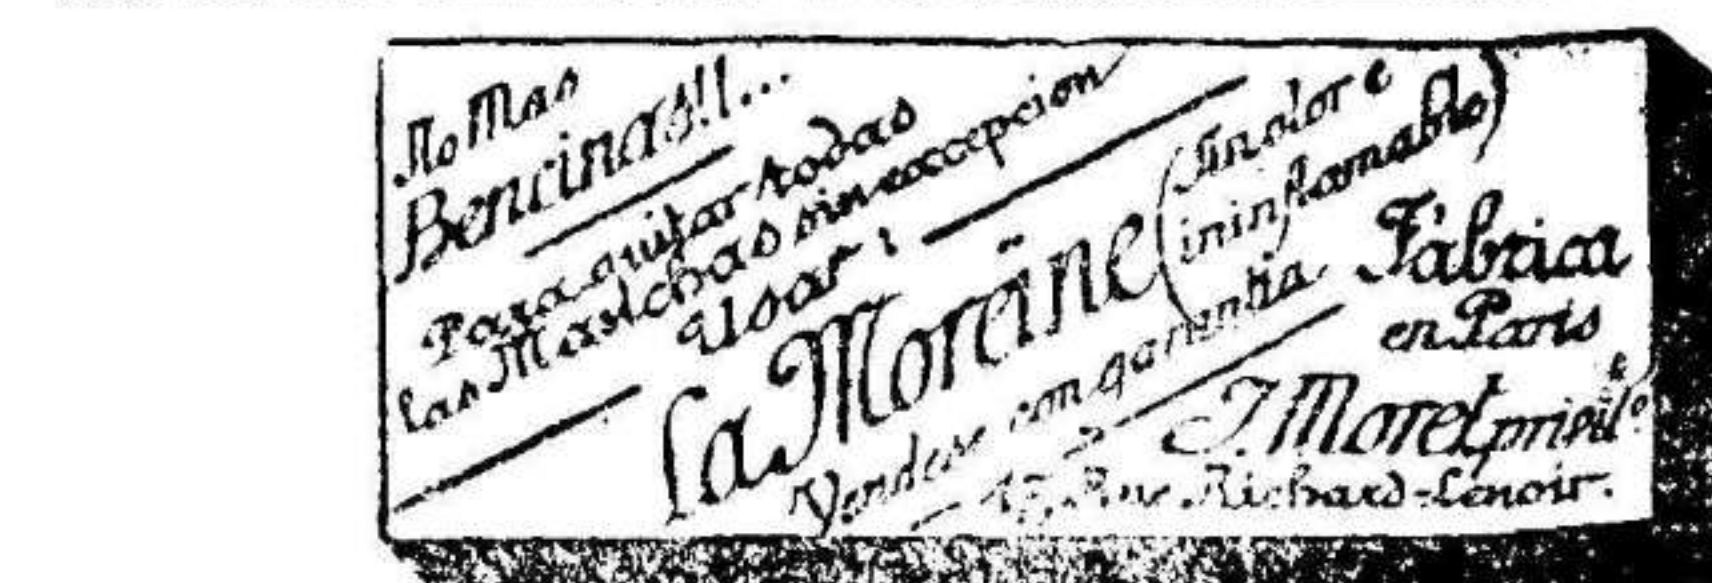 No Mas
Bencinas!!...
Para quitar todas
las Manchas sin excepcion
Usar:
La Moreïne
(Sin olor e
ininflamable)
Vendese con garantia
Fábrica
en Paris
J. Moret
Rue Richard-Lenoir.